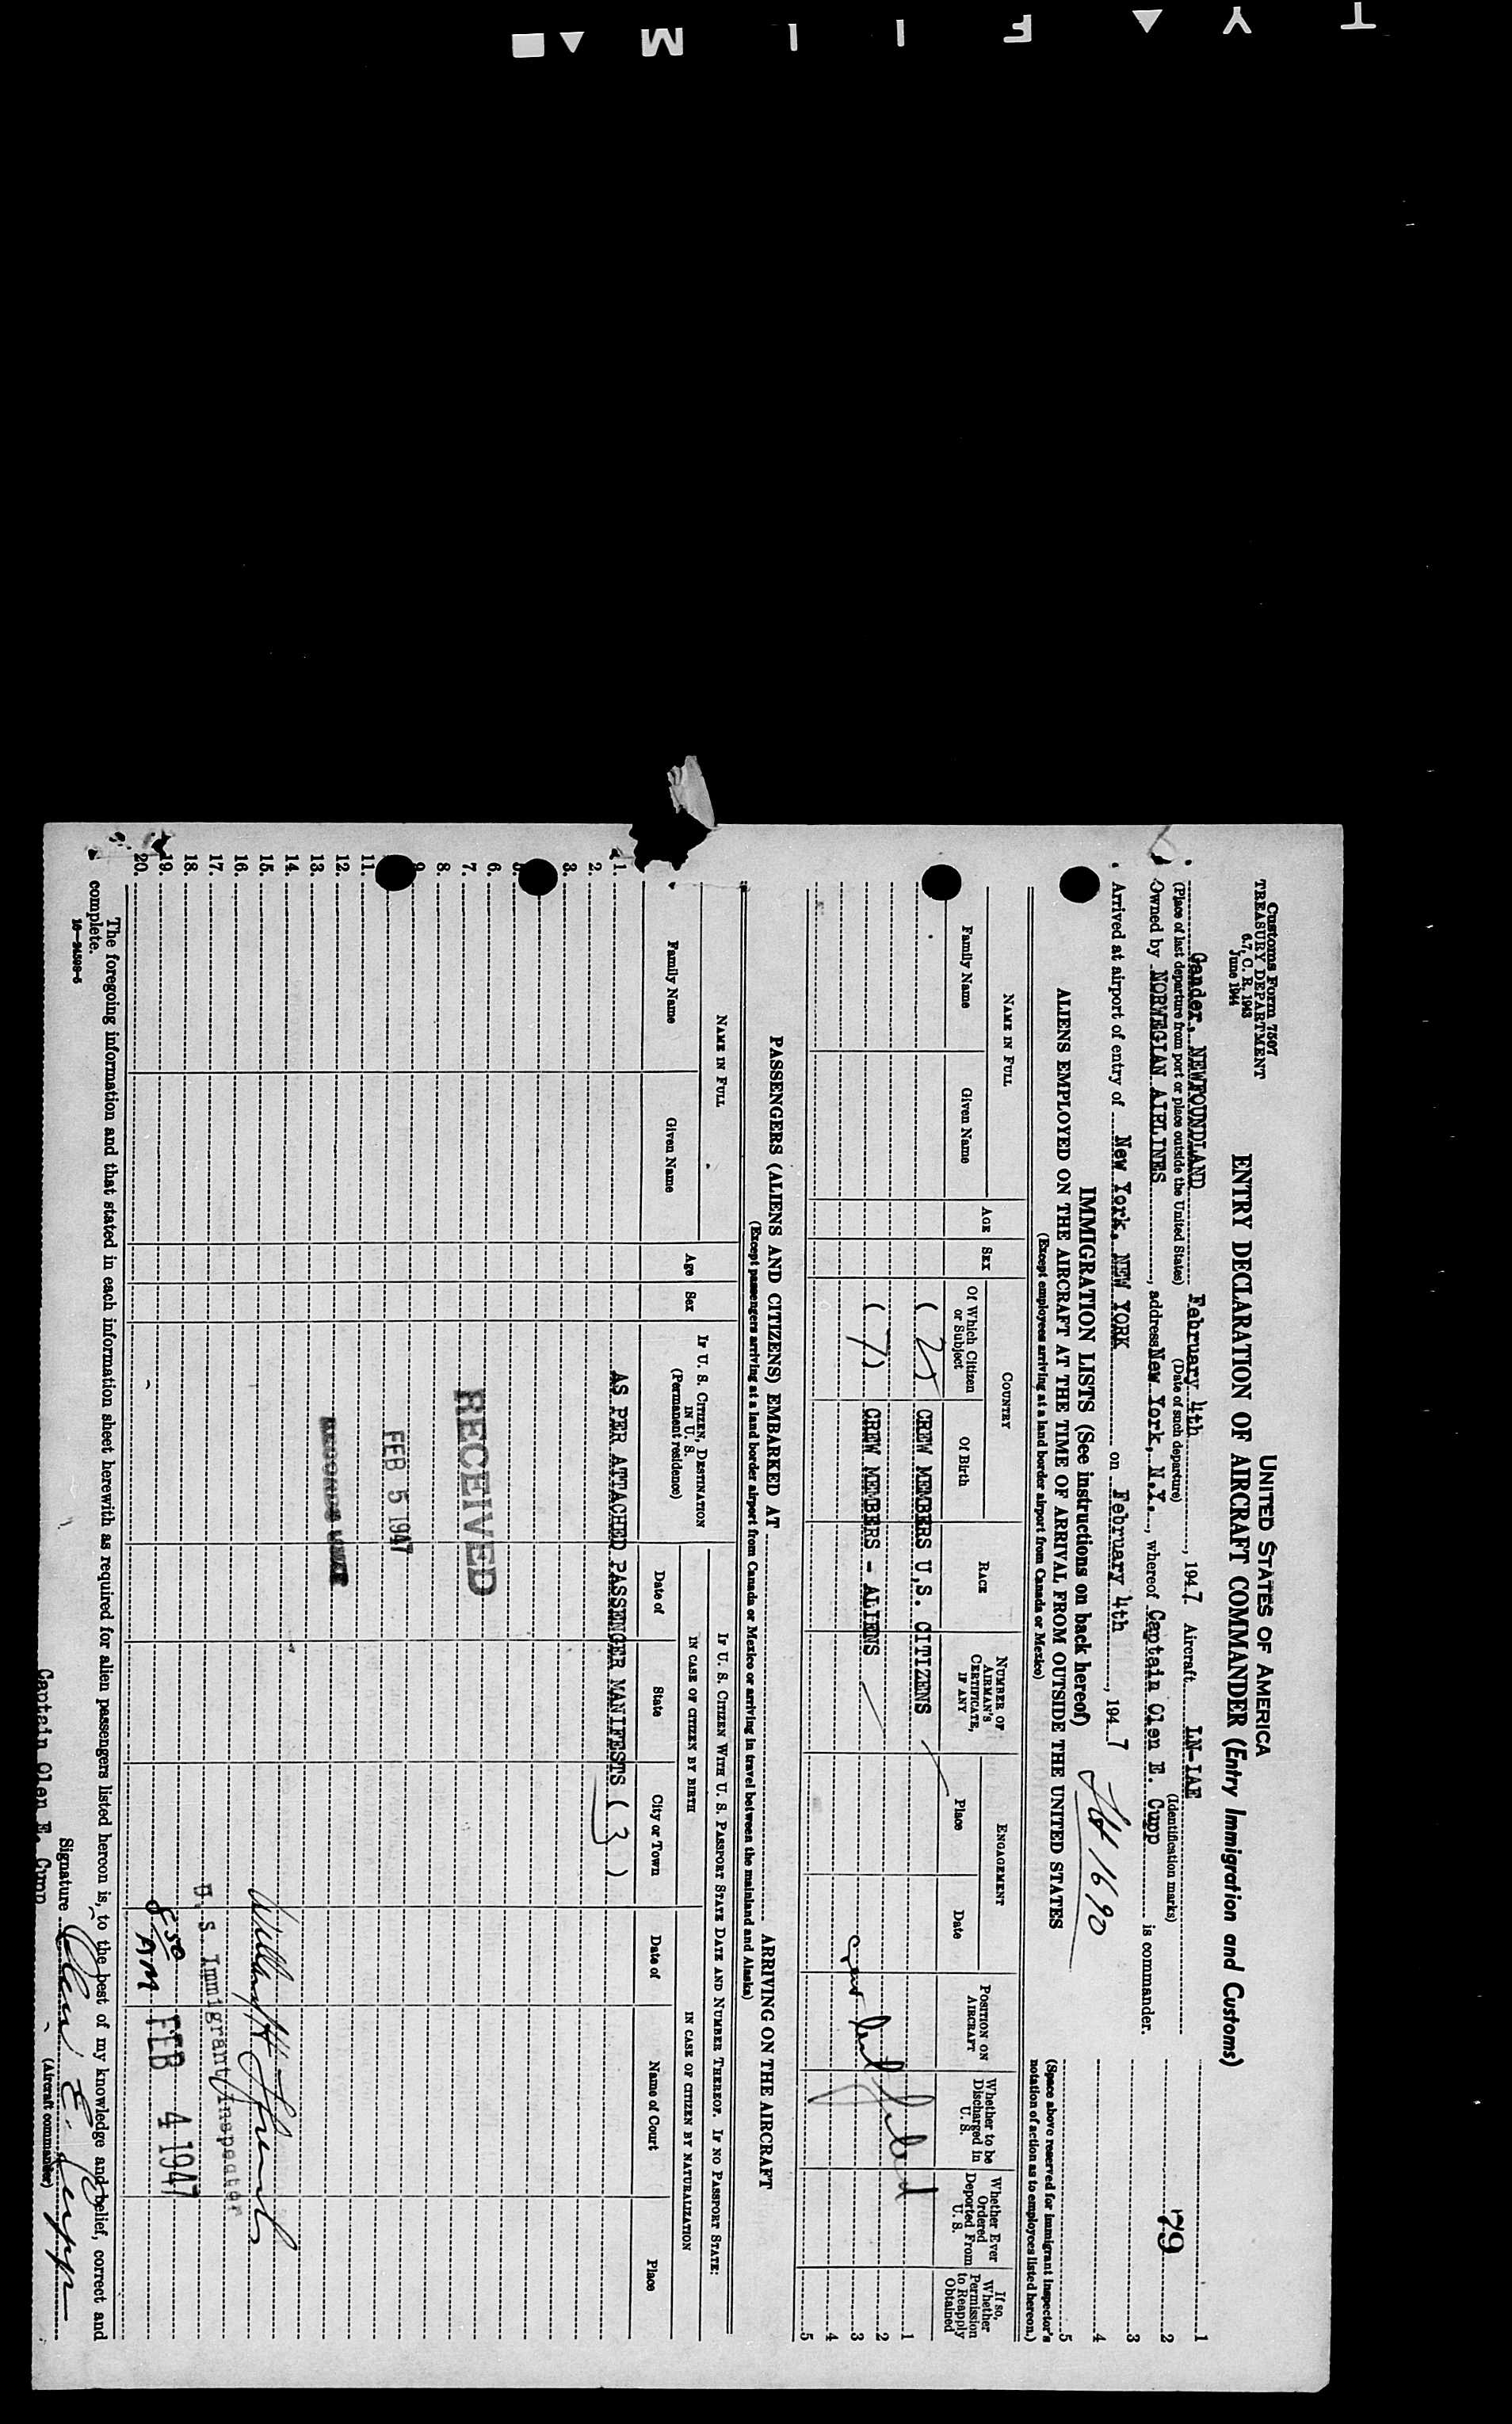 Customs Form 7507
TREASURY DEPARTMENT
6.7, C. R. 1943
June 1944
UNITED STATES OF AMERICA
ENTRY DECLARATION OF AIRCRAFT COMMANDER (Entry Immigration and Customs)
Gander, NEWFOUNDLAND February 4th, 1947 Aircraft LN-IAE
(Place of last departure from port or place outside the United States) (Date of such departure) (Identification marks)
Owned by NORWEGIAN AIRLINES, address New York, N.Y., whereof Captain Olen E. Cupp is commander.
Arrived at airport of entry of New York, NEW YORK on February 4th, 1947
1
2
79
3
4
5
(Space above reserved for immigrant inspector's notation of action as to employees listed hereon.)
IMMIGRATION LISTS (See instructions on back hereof)
1690
ALIENS EMPLOYED ON THE AIRCRAFT AT THE TIME OF ARRIVAL FROM OUTSIDE THE UNITED STATES
(Except employees arriving at a land border airport from Canada or Mexico)
NAME IN FULL
Family Name
Given Name
AGE
SEX
COUNTRY
Of Which Citizen or Subject
Of Birth
RACE
NUMBER OF AIRMAN'S CERTIFICATE, IF ANY
ENGAGEMENT
Place
Date
POSITION ON AIRCRAFT
Whether to be Discharged in U. S.
Whether Ever Ordered Deported From U. S.
If so, Whether Permission to Reapply Obtained
( 2 ) CREW MEMBERS U.S. CITIZENS
1
2
( 7 ) CREW MEMBERS - ALIENS
3
4
5
PASSENGERS (ALIENS AND CITIZENS) EMBARKED AT ARRIVING ON THE AIRCRAFT
(Except passengers arriving at a land border airport from Canada or Mexico or arriving in travel between the mainland and Alaska)
NAME IN FULL
Family Name
Given Name
Age
Sex
IF U. S. CITIZEN, DESTINATION IN U. S.
(Permanent residence)
IF U. S. CITIZEN WITH U. S. PASSPORT STATE DATE AND NUMBER THEREOF. IF NO PASSPORT STATE:
IN CASE OF CITIZEN BY BIRTH
IN CASE OF CITIZEN BY NATURALIZATION
Date of
State
City or Town
Date of
Name of Court
Place
1. AS PER ATTACHED PASSENGER MANIFESTS ( 3 )
2.
3.
5.
6.
7.
RECEIVED
8.
9.
FEB 5 1947
11.
12.
13.
14.
15.
16.
17.
U. S. Immigrant Inspector
18.
19.
8 50 AM FEB 4 1947
20.
The foregoing information and that stated in each information sheet herewith as required for alien passengers listed hereon is, to the best of my knowledge and belief, correct and
complete.
16—34598-5
Signature Olen E. Cupp
(Aircraft commander)
Captain Olen E. Cupp